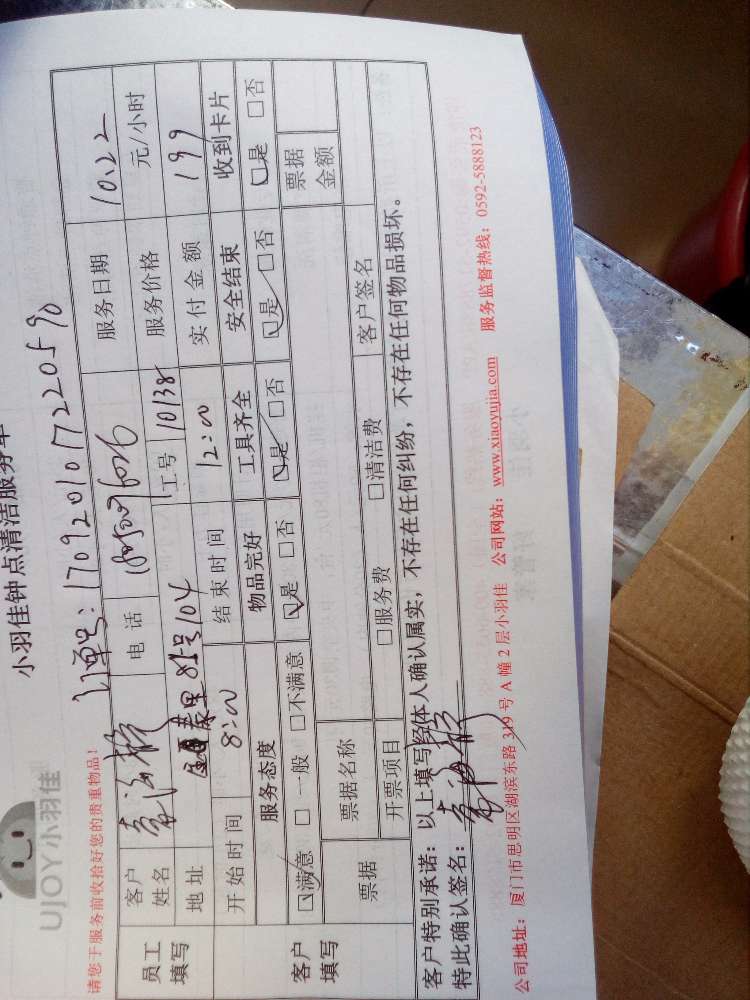 小羽佳钟点清洁服务单
UJOY小羽佳
请您于服务前收拾好您的贵重物品!
订单号:17092010177220590
员工填写 客户姓名 电话 服务日期 10.22
地址 82号104 工号 10138 服务价格 元/小时
开始时间 8:00 结束时间 12:00 实付金额 199
客户填写 服务态度 物品完好 工具齐全 安全结束 收到卡片
☑满意 □一般 □不满意 ☑是 □否 ☑是 □否 ☑是 □否 □是 □否
票据 票据名称 票据金额
开票项目 □服务费 □清洁费 客户签名
客户特别承诺:以上填写经体人确认属实,不存在任何纠纷,不存在任何物品损坏。
特此确认签名:
公司地址:厦门市思明区湖滨东路 319 号 A 幢 2 层小羽佳 公司网站:www.xiaoyujia.com 服务监督热线:0592-5888123